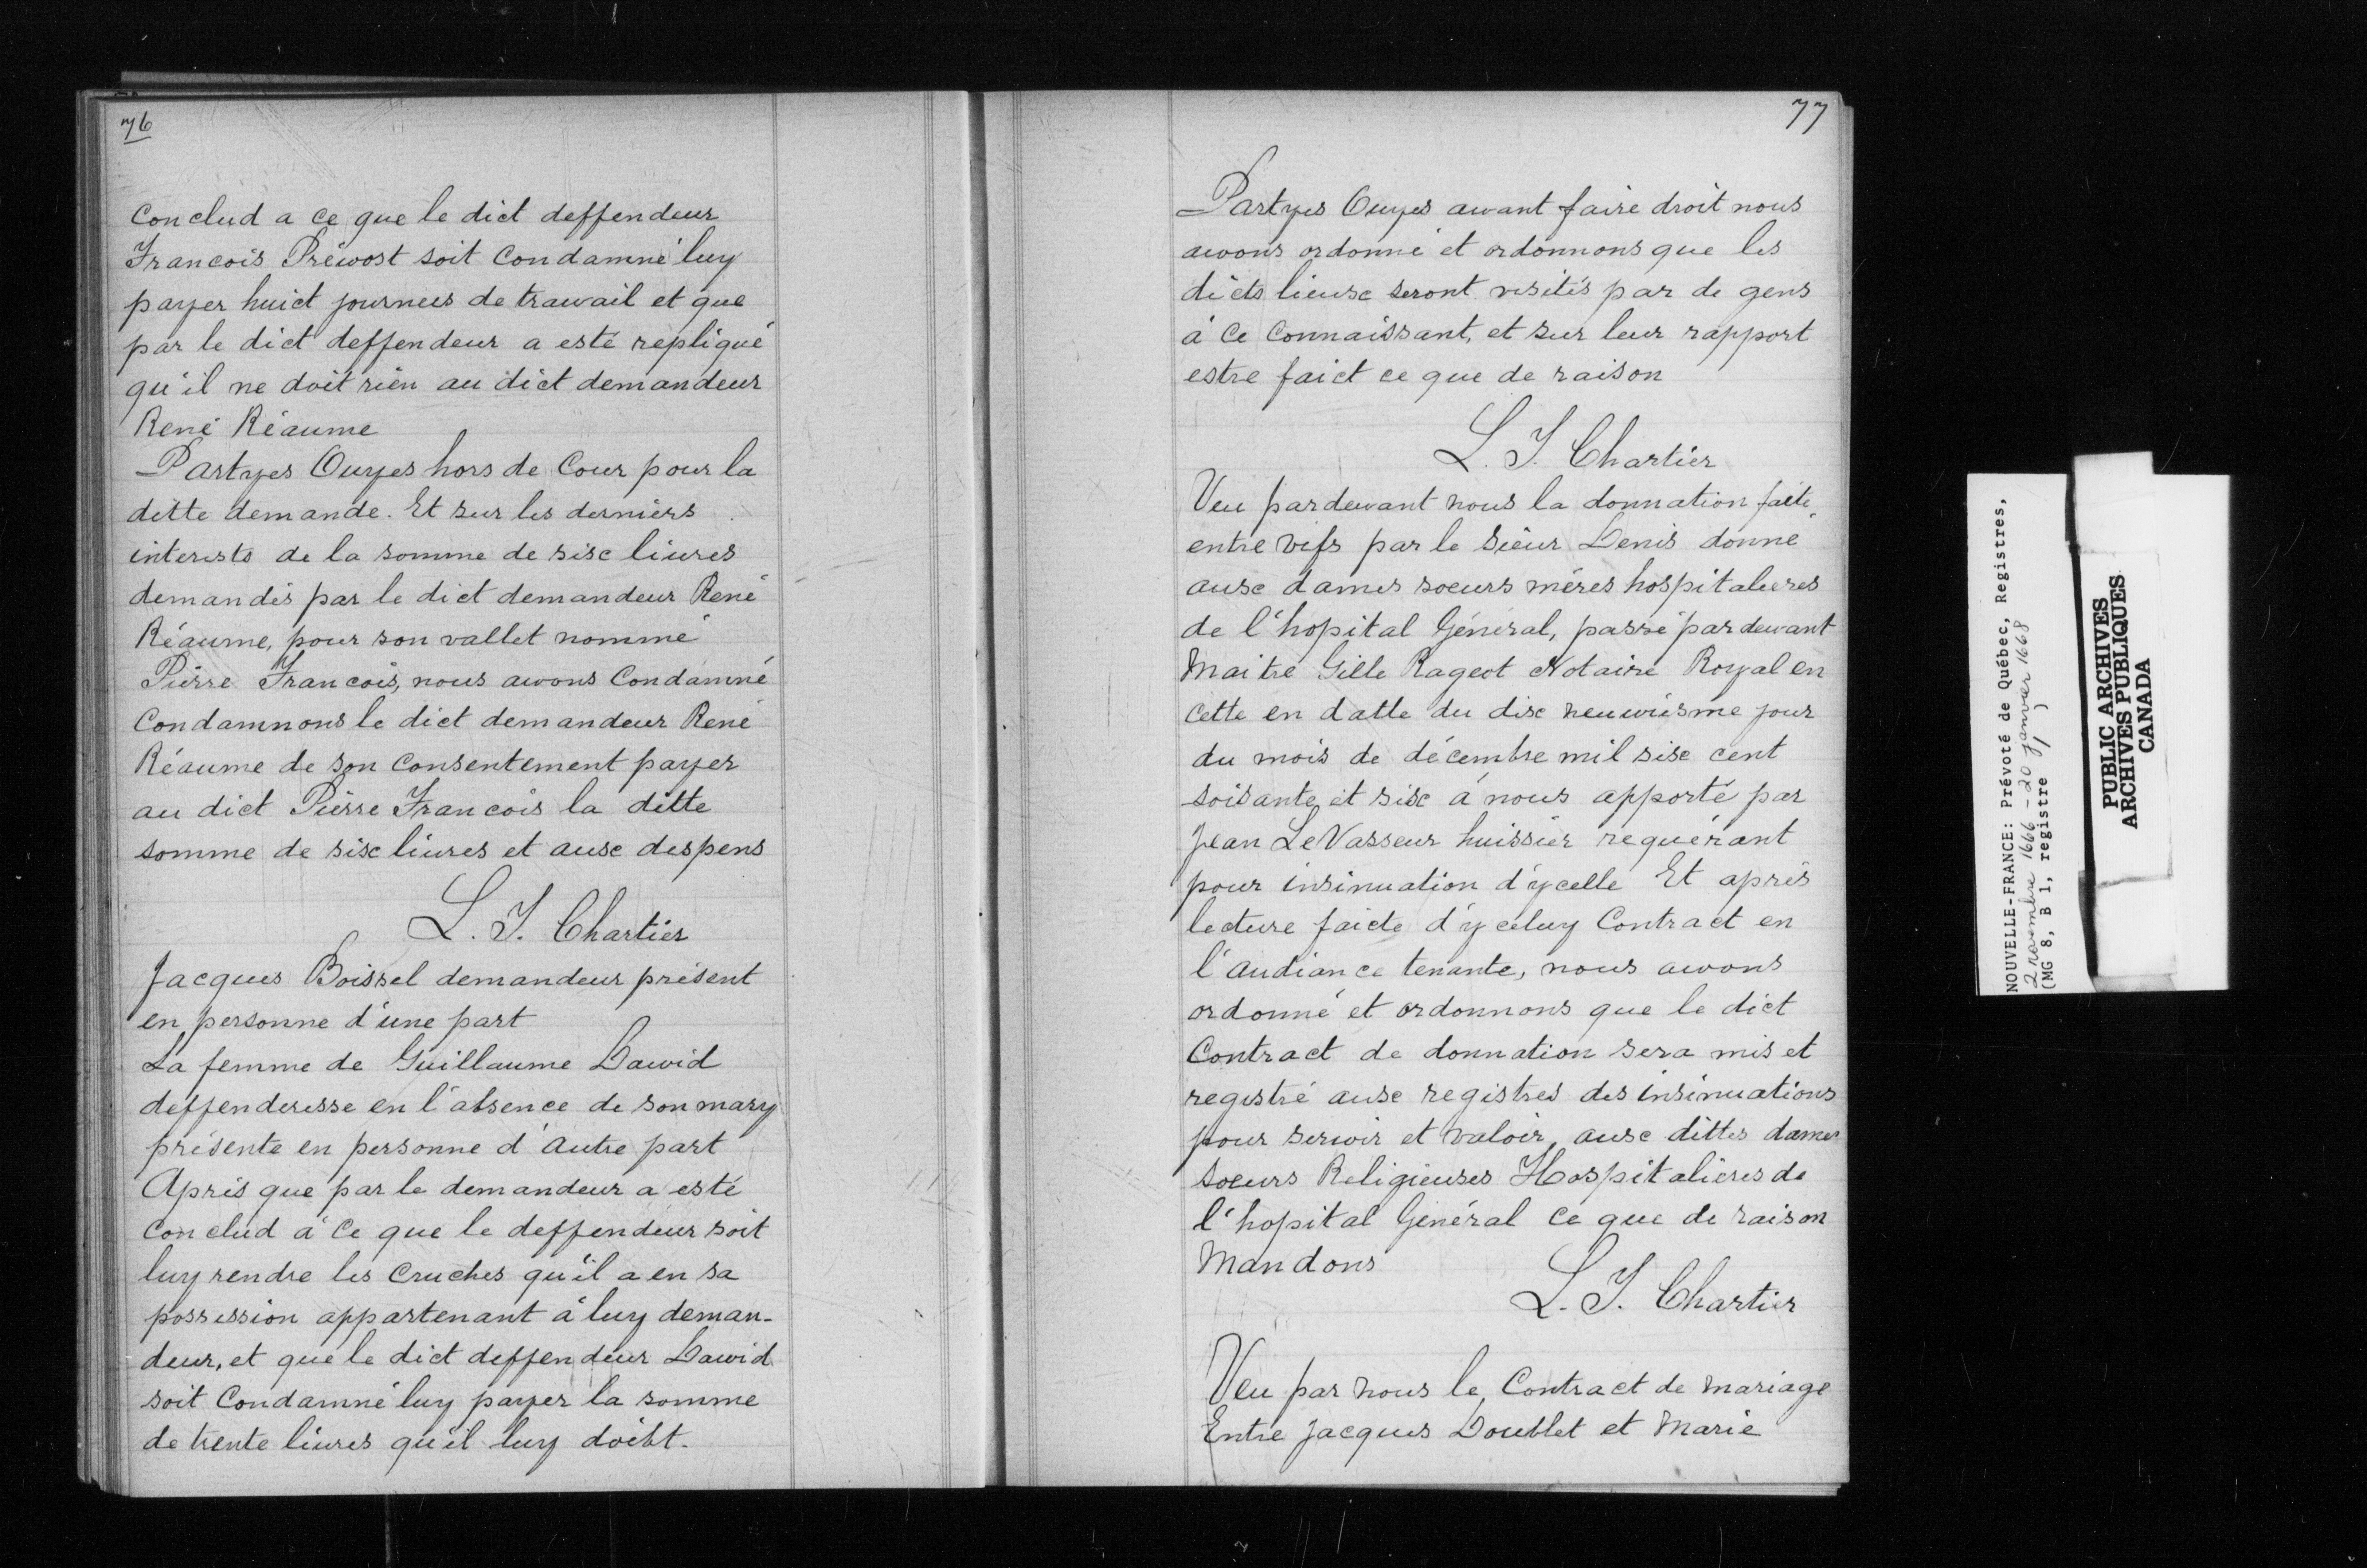 76
Conclud a ce que le dict deffendeur
Francois Préwost soit Condamné luy
payer huict journees de trawail et que
par le dict deffendeur a esté repliqué
qu'il ne doit rien au dict demandeur
René Réaume
Partyes Ouyes hors de Cour pour la
ditte demande. Et sur les derniers
interests de la somme de sisc liures
demandés par le dict demandeur René
Réaume, pour son vallet nommé
Pierre Francois, nous awons Condamné
Condamnons le dict demandeur René
Réaume de son Consentement payer
au dict Pierre Francois la ditte
somme de sisc liures et ausc despens
L. T. Chartier
Jacques Boissel demandeur présent
en personne d'une part
La femme de Guillaume Dawid
deffenderesse en l'absence de son mary
présente en personne d'autre part
Aprés que par le demandeur a esté
Conclud à Ce que le deffendeur soit
luy rendre les Cruches qu'il a en sa
possession appartenant à luy deman-
deur, et que le dict deffendeur Dawid
soit Condamné luy payer la somme
de trente liures qu'il luy doibt.
77
Partyes Ouyes awant faire droit nous
awons ordonné et ordonnons que les
dicts lieusc seront visités par de gens
à Ce Connaissant, et sur leur rapport
estre faict ce que de raison
L. T. Chartier
Veu pardewant nous la donnation faite
entre vifs par le Sieur Denis donné
ausc dames soeurs méres hospitalieres
de l'hopital Général, passé pardewant
Maitre Gille Rageot Notaire Royal en
Cette en datte du disc neuwiesme jour
du mois de décembre mil sisc cent
soisante et sisc à nous apporté par
Jean LeVasseur huissier requérant
pour insinuation d'ycelle Et aprés
lecture faicte d'yceluy Contract en
l'audiance tenante, nous awons
ordonné et ordonnons que le dict
Contract de donnation sera mis et
registré ausc registres des insinuations
pour serwir et valoir ausc dittes dames
soeurs Religieuses Hospitalières de
l'hopital Général ce que de raison
Mandons
L. T. Chartier
Veu par nous le Contract de mariage
Entre Jacques Doublet et Marie
NOUVELLE-FRANCE: Prévoté de Québec, Registres,
2 novembre 1666 - 20 janvier 1668
(MG 8, B 1, registre 1)
PUBLIC ARCHIVES
ARCHIVES PUBLIQUES
CANADA